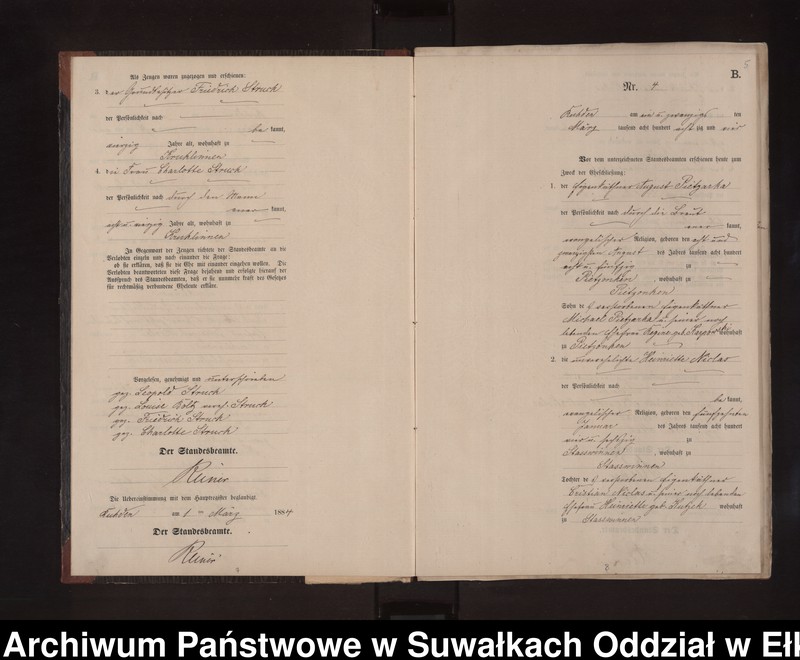 Als Zeugen waren zugezogen und erschienen:
3. der Grundbesitzer Friedrich Struck
der Persönlichkeit nach
be kannt,
vierzig Jahre alt, wohnhaft zu
Kruklinnen
4. die Frau Charlotte Struck
der Persönlichkeit nach durch den Mann
aner kannt,
acht u. vierzig Jahre alt, wohnhaft zu
Kruklinnen
In Gegenwart der Zeugen richteten der Standesbeamte an die
Verlobten einzeln und nach einander die Frage:
ob sie erklären, daß sie die Ehe mit einander eingehen wollen. Die
Verlobten beantworteten diese Frage bejahend und erfolgte hierauf der
Ausspruch des Standesbeamten, daß er sie nunmehr kraft des Gesetzes
für rechtmäßig verbundene Eheleute erkläre.
Vorgelesen, genehmigt und unterschrieben
gez. Leopold Struck
gez. Louise Struck
gez. Friedrich Struck
gez. Charlotte Struck
Der Standesbeamte.
Reiner
Die Uebereinstimmung mit dem Hauptregister beglaubigt.
Kutten am 1ten März 1884
Der Standesbeamte.
Reiner
5
B.
Nr. 4
Kutten am ein u. zwanzigst ten
März tausend acht hundert acht zig und vier
Vor dem unterzeichneten Standesbeamten erschienen heute zum
Zweck der Eheschließung:
1. der Eigenkäthner August Pietzarka
der Persönlichkeit nach durch die Braut
aner kannt,
evangelischer Religion, geboren den acht und
zwanzigsten August des Jahres tausend acht hundert
acht u. fünfzig zu
Pietzonken, wohnhaft zu
Pietzonken
Sohn des verstorbenen Eigenkäthner
Michael Pietzarka u. seiner noch
lebenden Ehefrau Regine geb. wohnhaft
zu Pietzonken
2. die unverehelichte Heinriette Niclas
der Persönlichkeit nach
be kannt,
evangelischer Religion, geboren den fünfzehnten
Januar des Jahres tausend acht hundert
vier u. sechszig zu
Stasswinnen, wohnhaft zu
Stasswinnen
Tochter des verstorbenen Eigenkäthner
Cristian Niclas u. seiner noch lebenden
Ehefrau Heinriette geb. wohnhaft
zu Stasswinnen
Archiwum Państwowe w Suwałkach Oddział w Ełk